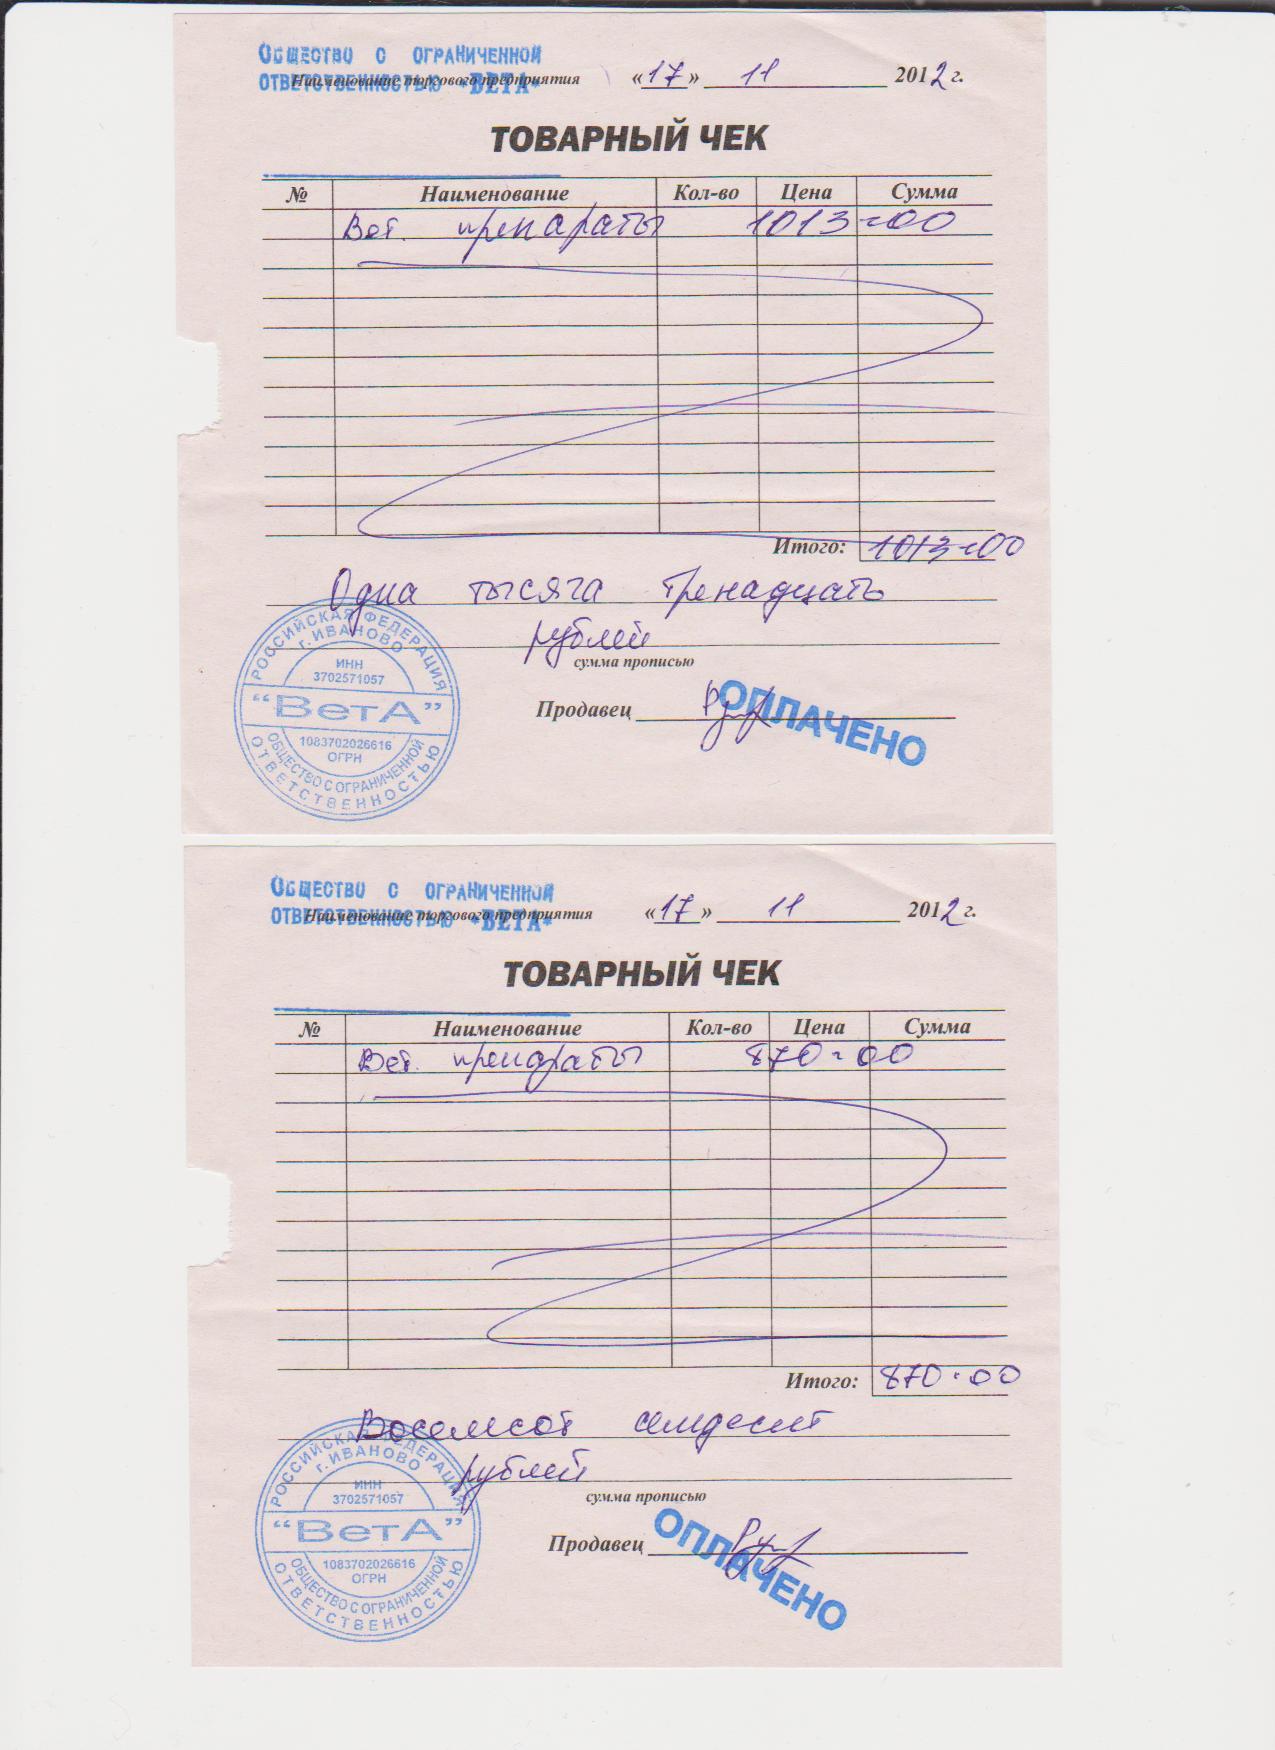 Общество с ограниченной
ответственностью "ВЕТА"
Наименование торгового предприятия «17» 11 2012 г.
ТОВАРНЫЙ ЧЕК
№ Наименование Кол-во Цена Сумма
Вет. препараты 1013=00
Итого: 1013=00
Одна тысяча тренадцать
рублей
сумма прописью
Продавец
ОПЛАЧЕНО
РОССИЙСКАЯ ФЕДЕРАЦИЯ
г. ИВАНОВО
ИНН
3702571057
"ВетА"
1083702026616
ОГРН
ОБЩЕСТВО С ОГРАНИЧЕННОЙ
ОТВЕТСТВЕННОСТЬЮ
Общество с ограниченной
ответственностью "ВЕТА"
Наименование торгового предприятия «17» 11 2012 г.
ТОВАРНЫЙ ЧЕК
№ Наименование Кол-во Цена Сумма
Вет. препараты 870=00
Итого: 870=00
Восемсот семдесят
рублей
сумма прописью
Продавец
ОПЛАЧЕНО
РОССИЙСКАЯ ФЕДЕРАЦИЯ
г. ИВАНОВО
ИНН
3702571057
"ВетА"
1083702026616
ОГРН
ОБЩЕСТВО С ОГРАНИЧЕННОЙ
ОТВЕТСТВЕННОСТЬЮ